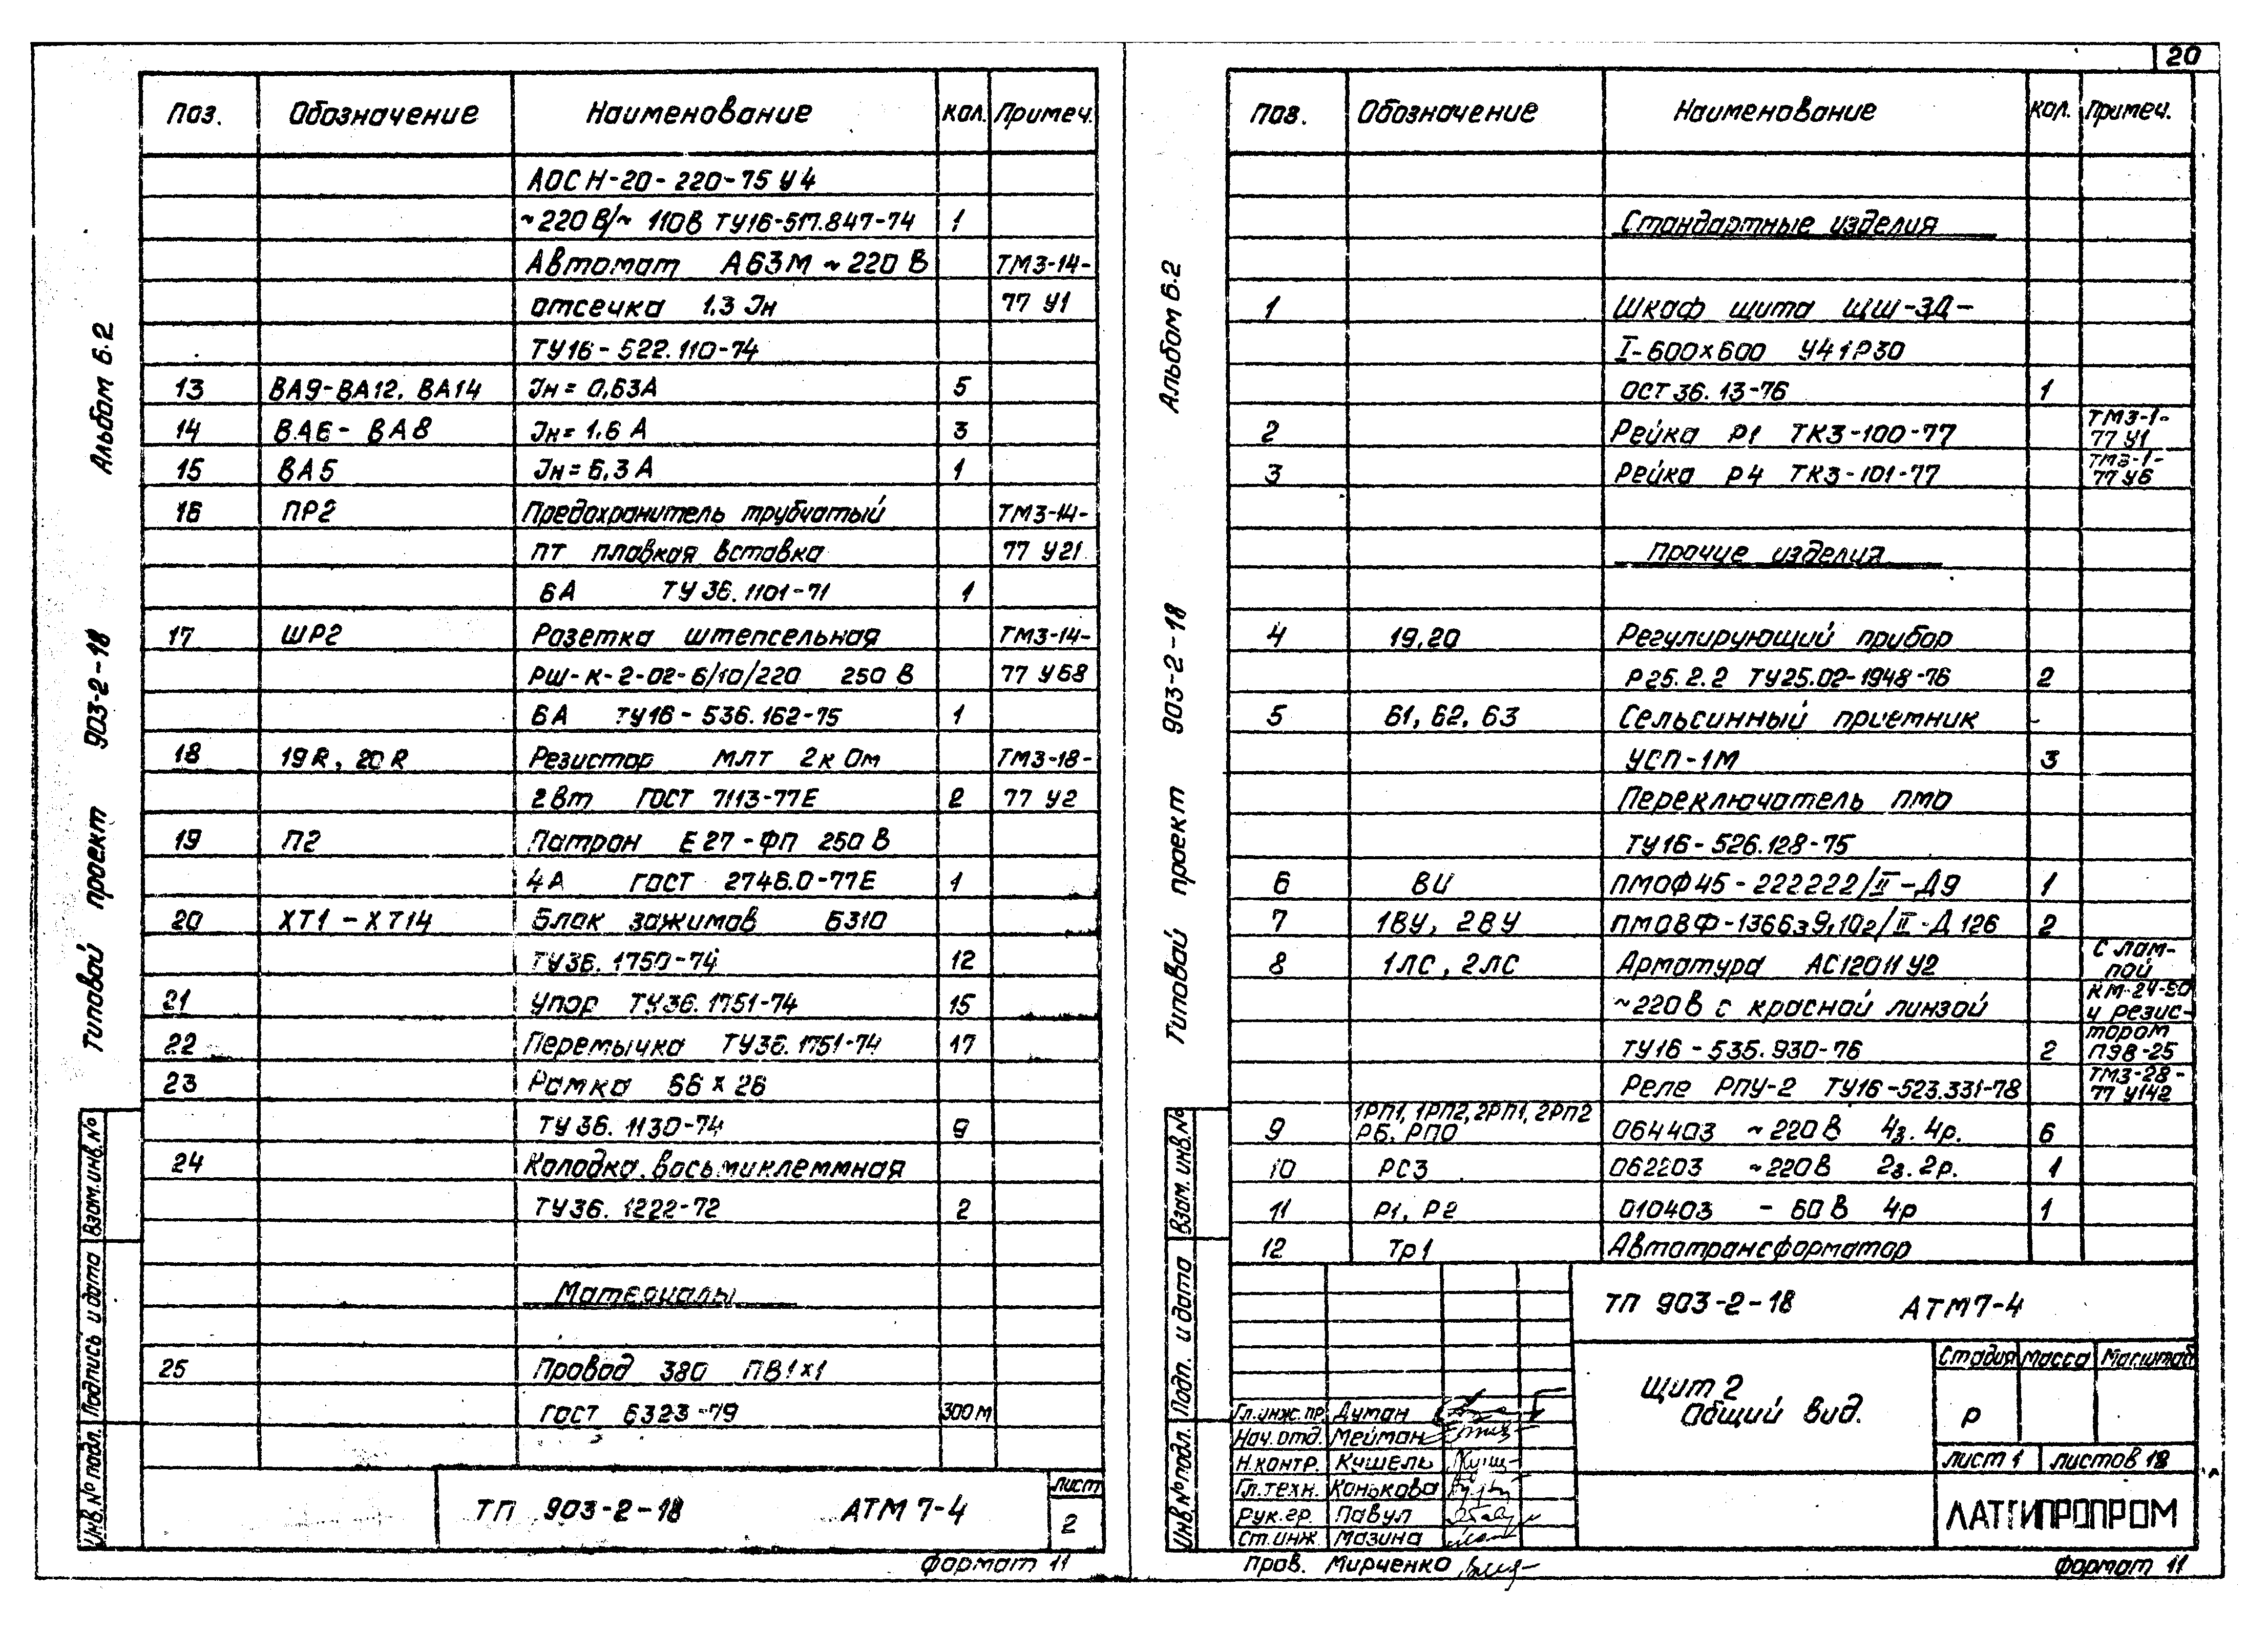 20
Альбом 6.2
Типовой проект 903-2-18
Поз. Обозначение Наименование Кол. Примеч.
АОСН-20-220-75 У4
~220 В/~ 110В ТУ16-517.847-74 1
Автомат А63М ~220 В ТМ3-14-
отсечка 1,3 Iн 77 У1
ТУ16-522.110-74
13 ВА9-ВА12, ВА14 Iн = 0,63А 5
14 ВА6- ВА8 Iн = 1,6 А 3
15 ВА5 Iн = 6,3 А 1
16 ПР2 Предохранитель трубчатый ТМ3-14-
ПТ плавкая вставка 77 У21
6А ТУ 36.1101-71 1
17 ШР2 Розетка штепсельная ТМ3-14-
РШ-К-2-02-6/10/220 250 В 77 У68
6А ТУ16-536.162-75 1
18 19R, 20R Резистор МЛТ 2к Ом ТМ3-18-
2Вт ГОСТ 7113-77Е 2 77 У2
19 П2 Патрон Е27-ФП 250 В
4А ГОСТ 2746.0-77Е 1
20 ХТ1-ХТ14 Блок зажимов Б310
ТУ36.1750-74 12
21 Упор ТУ36.1751-74 15
22 Перемычка ТУ36.1751-74 17
23 Рамка 66 х 26
ТУ36.1130-74 9
24 Колодка восьмиклеммная
ТУ36.1222-72 2
Материалы
25 Провод 380 ПВ1х1
ГОСТ 6323-79 300м
Взам. инв. №
Подпись и дата
Инв. № подл.
ТП 903-2-18 АТМ7-4
Лист
2
Формат 11
Альбом 6.2
Типовой проект 903-2-18
Поз. Обозначение Наименование Кол. Примеч.
Стандартные изделия
1 Шкаф щита ЩШ-ЗД-
I-600х600 У4 IР30
ОСТ 36.13-76 1
2 Рейка Р1 ТК3-100-77 ТМ3-1-
77 У1
3 Рейка Р4 ТК3-101-77 ТМ3-1-
77 У6
Прочие изделия
4 19,20 Регулирующий прибор
Р25.2.2 ТУ25.02-1948-76 2
5 61, 62, 63 Сельсинный приемник
УСП-1М 3
Переключатель ПМО
ТУ16-526.128-75
6 ВИ ПМОФ45-222222/II-Д9 1
7 1ВУ, 2ВУ ПМОВФ-1366з9,10г/II-Д 126 2
8 1ЛС, 2ЛС Арматура АС12011У2 С лам-
пой
~220В с красной линзой КМ-24-90
и резис-
ТУ16-535.930-76 2 тором
ПЭВ-25
Реле РПУ-2 ТУ16-523.331-78 ТМ3-28-
77 У142
1РП1, 1РП2, 2РП1, 2РП2
9 РБ, РПО 064403 ~220 В 4з. 4р. 6
10 РС3 062203 ~220В 2з. 2р. 1
11 Р1, Р2 010403 - 60 В 4р 1
12 Тр1 Автотрансформатор
Взам. инв. №
Подп. и дата
Инв. № подл.
ТП 903-2-18 АТМ7-4
Щит 2
Общий вид.
Стадия Масса Масштаб
Р
Лист 1 Листов 18
ЛАТГИПРОПРОМ
Гл. инж. пр. Думан
Нач. отд. Мейман
Н. контр. Кушель
Гл. техн. Конькова
Рук. гр. Павул
Ст. инж. Мазина
Пров. Мирченко
Формат 11